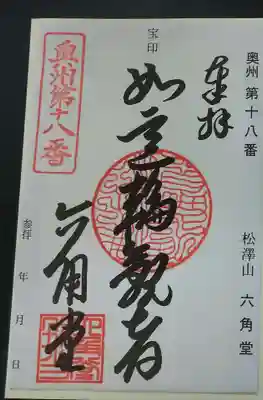 奥州 第十八番 松澤山 六角堂
奉拝
宝印
如意輪観音
六角堂
奥州第十八番
参拝 年 月 日